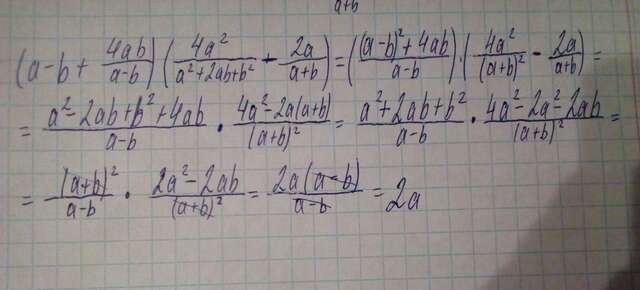 a+b
(a-b + 4ab/a-b) (4a²/a²+2ab+b² - 2a/a+b) = ((a-b)²+4ab/a-b) · (4a²/(a+b)² - 2a/a+b) =
= a²-2ab+b²+4ab/a-b · 4a²-2a(a+b)/(a+b)² = a²+2ab+b²/a-b · 4a²-2a²-2ab/(a+b)² =
= (a+b)²/a-b · 2a²-2ab/(a+b)² = 2a(a-b)/a-b = 2a